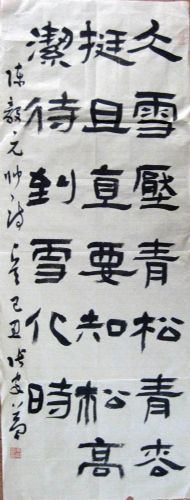 大雪壓青松青松
挺且直要知松高
潔待到雪化時
陳毅元帥詩 己丑